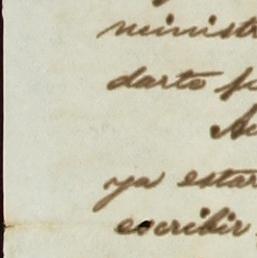 ministr
darte
ya estar
escribir